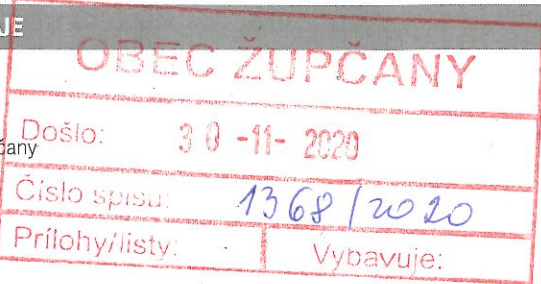 JE
OBEC ŽUPČANY
Došlo: 30 -11- 2020
čany
Číslo spisu: 1368/2020
Prílohy/listy: Vybavuje: